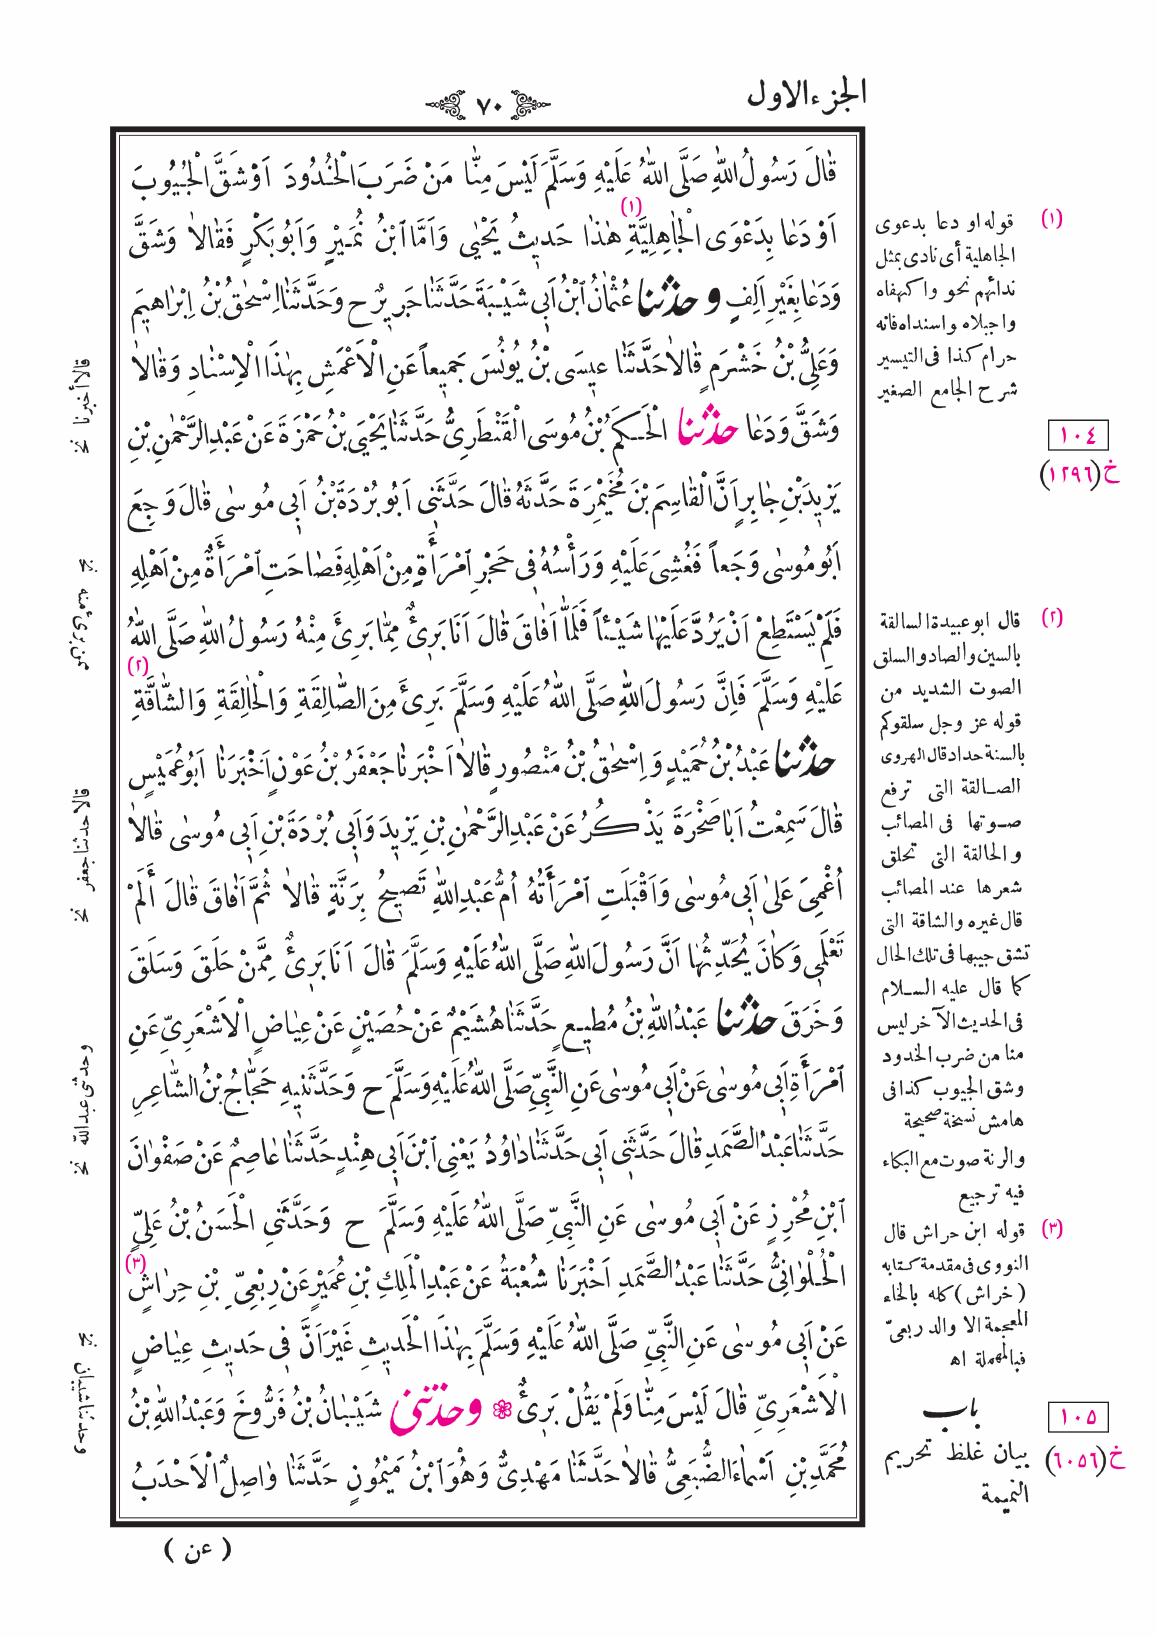 الجزء الاول
٧٠
قَالَ رَسُولُ اللّٰهِ صَلَّى اللّٰهُ عَلَيْهِ وَسَلَّمَ لَيْسَ مِنَّا مَنْ ضَرَبَ الْخُدُودَ اَوْ شَقَّ الْجُيُوبَ
اَوْ دَعَا بِدَعْوَى الْجَاهِلِيَّةِ (١) هٰذَا حَدِيثُ يَحْيٰى وَاَمَّا ابْنُ نُمَيْرٍ وَاَبُو بَكْرٍ فَقَالَا وَشَقَّ
وَدَعَا بِغَيْرِ اَلِفٍ وحدثنا عُثْمَانُ ابْنُ اَبِى شَيْبَةَ حَدَّثَنَا جَرِيرٌ ح وَحَدَّثَنَا اِسْحٰقُ بْنُ اِبْرَاهِيمَ
وَعَلِىُّ بْنُ خَشْرَمٍ قَالَا حَدَّثَنَا عِيسَى بْنُ يُونُسَ جَمِيعاً عَنِ الْاَعْمَشِ بِهٰذَا الْاِسْنَادِ وَقَالَا
وَشَقَّ وَدَعَا حدثنا الْحَكَمُ بْنُ مُوسَى الْقَنْطَرِىُّ حَدَّثَنَا يَحْيَى بْنُ حَمْزَةَ عَنْ عَبْدِ الرَّحْمٰنِ بْنِ
يَزِيدَ بْنِ جَابِرٍ اَنَّ الْقَاسِمَ بْنَ مُخَيْمِرَةَ حَدَّثَهُ قَالَ حَدَّثَنِى اَبُو بُرْدَةَ بْنُ اَبِى مُوسٰى قَالَ وَجِعَ
اَبُو مُوسٰى وَجَعاً فَغُشِىَ عَلَيْهِ وَرَأْسُهُ فِى حَجْرِ امْرَأَةٍ مِنْ اَهْلِهِ فَصَاحَتِ امْرَأَةٌ مِنْ اَهْلِهِ
فَلَمْ يَسْتَطِعْ اَنْ يَرُدَّ عَلَيْهَا شَيْئاً فَلَمَّا اَفَاقَ قَالَ اَنَا بَرِىءٌ مِمَّا بَرِئَ مِنْهُ رَسُولُ اللّٰهِ صَلَّى اللّٰهُ
عَلَيْهِ وَسَلَّمَ فَاِنَّ رَسُولَ اللّٰهِ صَلَّى اللّٰهُ عَلَيْهِ وَسَلَّمَ بَرِئَ مِنَ الصَّالِقَةِ وَالْحَالِقَةِ وَالشَّاقَّةِ (٢)
حدثنا عَبْدُ بْنُ حُمَيْدٍ وَ اِسْحٰقُ بْنُ مَنْصُورٍ قَالَا اَخْبَرَنَا جَعْفَرُ بْنُ عَوْنٍ اَخْبَرَنَا اَبُو عُمَيْسٍ
قَالَ سَمِعْتُ اَبَا صَخْرَةَ يَذْكُرُ عَنْ عَبْدِ الرَّحْمٰنِ بْنِ يَزِيدَ وَاَبِى بُرْدَةَ بْنِ اَبِى مُوسٰى قَالَا
اُغْمِىَ عَلٰى اَبِى مُوسٰى وَاَقْبَلَتِ امْرَأَتُهُ اُمُّ عَبْدِ اللّٰهِ تَصِيحُ بِرَنَّةٍ قَالَا ثُمَّ اَفَاقَ قَالَ أَلَمْ
تَعْلَمِى وَكَانَ يُحَدِّثُهَا اَنَّ رَسُولَ اللّٰهِ صَلَّى اللّٰهُ عَلَيْهِ وَسَلَّمَ قَالَ اَنَا بَرِىءٌ مِمَّنْ حَلَقَ وَسَلَقَ
وَخَرَقَ حدثنا عَبْدُ اللّٰهِ بْنُ مُطِيعٍ حَدَّثَنَا هُشَيْمٌ عَنْ حُصَيْنٍ عَنْ عِيَاضٍ الْاَشْعَرِىِّ عَنِ
امْرَأَةِ اَبِى مُوسٰى عَنْ اَبِى مُوسٰى عَنِ النَّبِىِّ صَلَّى اللّٰهُ عَلَيْهِ وَسَلَّمَ ح وَحَدَّثَنِيهِ حَجَّاجُ بْنُ الشَّاعِرِ
حَدَّثَنَا عَبْدُ الصَّمَدِ قَالَ حَدَّثَنِى اَبِى حَدَّثَنَا دَاوُدُ يَعْنِى ابْنَ اَبِى هِنْدٍ حَدَّثَنَا عَاصِمٌ عَنْ صَفْوَانَ
ابْنِ مُحْرِزٍ عَنْ اَبِى مُوسٰى عَنِ النَّبِىِّ صَلَّى اللّٰهُ عَلَيْهِ وَسَلَّمَ ح وَحَدَّثَنِى الْحَسَنُ بْنُ عَلِىٍّ
الْحُلْوَانِىُّ حَدَّثَنَا عَبْدُ الصَّمَدِ اَخْبَرَنَا شُعْبَةُ عَنْ عَبْدِ الْمَلِكِ بْنِ عُمَيْرٍ عَنْ رِبْعِىِّ بْنِ حِرَاشٍ (٣)
عَنْ اَبِى مُوسٰى عَنِ النَّبِىِّ صَلَّى اللّٰهُ عَلَيْهِ وَسَلَّمَ بِهٰذَا الْحَدِيثِ غَيْرَ اَنَّ فِى حَدِيثِ عِيَاضٍ
الْاَشْعَرِىِّ قَالَ لَيْسَ مِنَّا وَلَمْ يَقُلْ بَرِىءٌ وحدثنى شَيْبَانُ بْنُ فَرُّوخَ وَعَبْدُ اللّٰهِ بْنُ
مُحَمَّدِ بْنِ اَسْمَاءَ الضُّبَعِىُّ قَالَا حَدَّثَنَا مَهْدِىٌّ وَهُوَ ابْنُ مَيْمُونٍ حَدَّثَنَا وَاصِلٌ الْاَحْدَبُ
( عن )
(١) قوله او دعا بدعوى
الجاهلية أى نادى بمثل
ندائهم نحو واكهفاه
واجبلاه واسنداه فانه
حرام كذا فى التيسير
شرح الجامع الصغير
١٠٤
خ (١٢٩٦)
(٢) قال ابو عبيدة السالقة
بالسين والصاد والسلق
الصوت الشديد من
قوله عز وجل سلقوكم
بالسنة حداد قال الهروى
الصالقة التى ترفع
صوتها فى المصائب
والحالقة التى تحلق
شعرها عند المصائب
قال غيره والشاقة التى
تشق جيبها فى تلك الحال
كما قال عليه السلام
فى الحديث الآخر ليس
منا من ضرب الخدود
وشق الجيوب كذا فى
هامش نسخة صحيحة
والرنة صوت مع البكاء
فيه ترجيع
(٣) قوله ابن حراش قال
النووى فى مقدمة كتابه
(خراش) كله بالخاء
المعجمة الا والد ربعىّ
فبالمهملة اه
١٠٥
خ (٦٠٥٦)
باب
بيان غلظ تحريم
النميمة
قالا أخبرنا نخ
ممن برئ منه نخ
قالا حدثنا جعفر نخ
وحدثنى عبدالله نخ
وحدثنا شيبان نخ